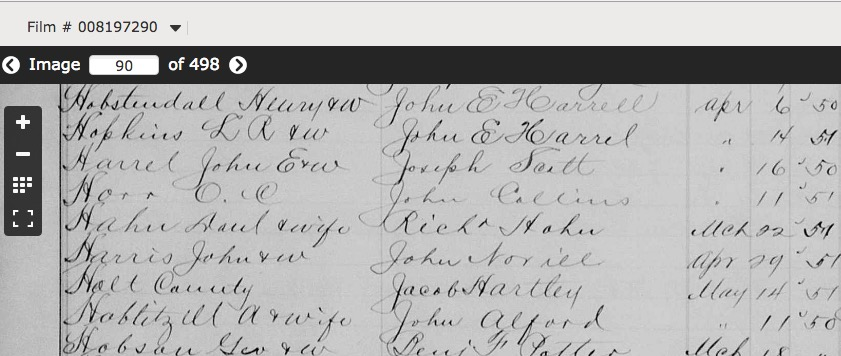 Film # 008197290
Image 90 of 498
Hobstendall Henry & w John E Harrell Apr 6 " 50
Hopkins L R & w John E Harrel " 14 51
Harrel John E & w Joseph Scott " 16 " 50
Horr O. C John Collins " 11 " 51
Hahn Saul & wife Richd Hahn Mch 22 " 51
Harris John & w John Norvill Apr 29 " 51
Holt County Jacob Hartley May 14 " 51
Hablitzill A & wife John Alford " 11 " 50
Hobson Geo & w Benj F Potter Mch